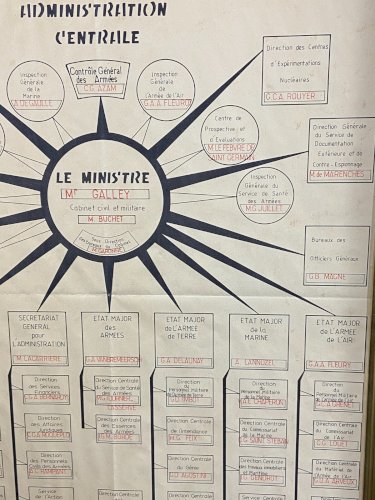 ADMINISTRATION
CENTRALE
Inspection
Générale
de la
Marine
A.DEGAULLE
Contrôle Général
des Armées
C.G. AZAM
Inspection
Générale
de l'Armée
de l'Air
G.A.A. FLEUROT
Direction des Centres
d'Expérimentations
Nucléaires
G.C.A. ROUYER
Centre de
Prospective et
d'Evaluations
M. LEFEBVRE DE
SAINT GERMAIN
Direction Générale
du Service de
Documentation
Extérieure et de
Contre-Espionnage
M. de MARENCHES
Inspection
Générale du
Service de Santé
des Armées
M.G. JUILLET
LE MINISTRE
Mr GALLEY
Cabinet civil et militaire
M. BUCHET
Sous Direction
Bureaux des
Officiers Généraux
G.B. MAGNE
SECRETARIAT
GENERAL
pour
L'ADMINISTRATION
M. LACARRIERE
ETAT MAJOR
des
ARMEES
ETAT MAJOR
de L'ARMEE
de TERRE
G.A. DELAUNAY
ETAT MAJOR
de la
MARINE
A. LANNUZEL
ETAT MAJOR
de L'ARMEE
de L'AIR
G.A.A. FLEURY
Direction
des Services
Financiers
Direction Centrale
du Service de Santé
des Armées
Direction du
Personnel Militaire
de l'Armée de Terre
Direction du
Personnel Militaire
de la Marine
V.A. CHAPERON
Direction du
Personnel Militaire
de l'Armée de l'Air
Direction
des Affaires
Juridiques
Direction Centrale
des Essences des
Armées
Direction Centrale
de l'Intendance
I.G. FEIX
Direction Centrale
du Commissariat
de la Marine
Direction Centrale
du Commissariat
de l'Air
Direction
des Personnels
Civils des Armées
Direction Centrale
du Génie
G.D. AGOSTINI
Direction Centrale
des Travaux Immobiliers et
Maritimes
Direction Centrale
du Matériel de
l'Armée de l'Air
Service
Direction Centrale
Direction Centrale